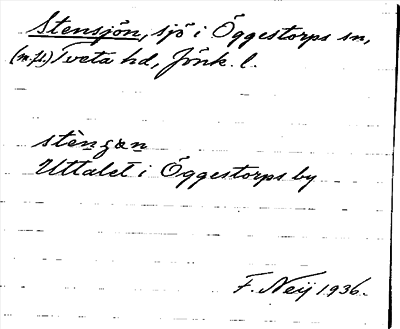 Stensjön, sjö i Öggestorps sn,
(m.fl.) Tveta hd, Jönk. l.
Uttalet i Öggestorps by
F. Neij 1936.